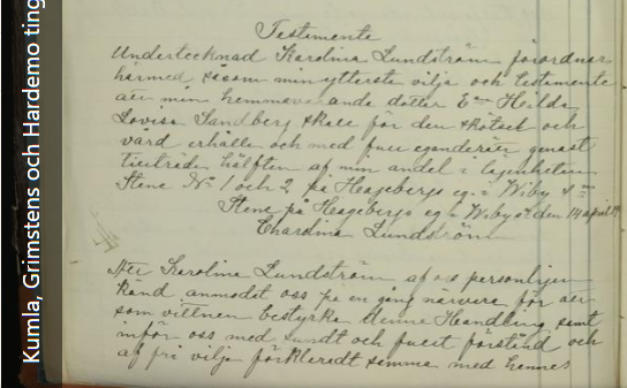 Kumla, Grimstens och Hardemo ting
Testamente
Undertecknad Karolina Lundström förordnar
härmed såsom min yttersta vilja och testamente
att min hemmavarande dotter E Hilda
Lovisa Sandberg skall för den skötsel och
vård erhålla och med full eganderätt genast
tillträda hälften af min andel i lägenheten
Stene No 1 och 2 på Hageberg eg. i Wiby s
Stene på Hageberg eg i Wiby s den 14 april
Charolina Lundström
Att Karolina Lundström af oss personligen
känd anmodat oss på en gång närvara för att
som vittnen bestyrka denna Handling samt
inför oss med sundt och fullt förstånd och
af fri vilja förklaradt med hennes